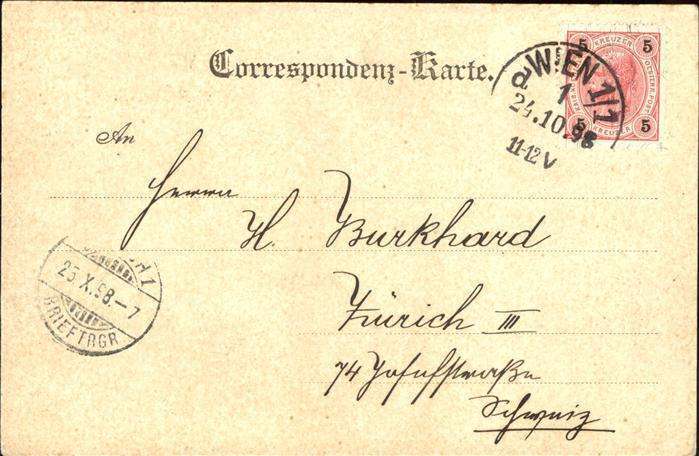 Correspondenz-Karte.
5 KREUZER 5
5 KREUZER 5
WIEN 1/1
d
1
24.10.98
11-12 V
An
Herrn
H. Burkhard
Zürich III
74 Josefstraße
Schweiz
25.X.98-7
BRIEFTRGR